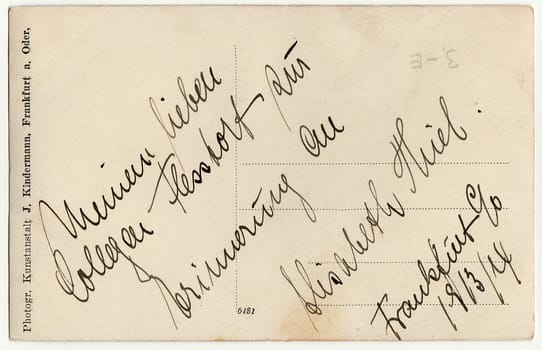 Photogr. Kunstanstalt J. Kindermann, Frankfurt a. Oder,
Meinem lieben
Collegen Flesshoff zur
Erinnerung an
Elisabeth Thiel.
Frankfurt 9/0
19/3/14
6481
3.-E